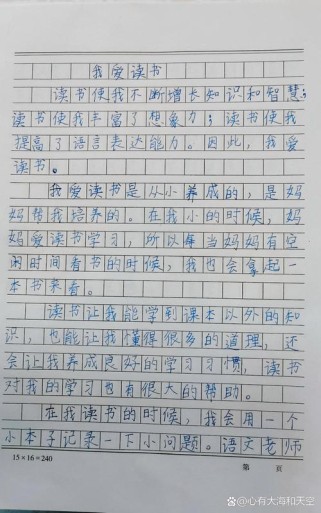 我爱读书
读书使我不断增长知识和智慧;
读书使我丰富了想象力;读书使我
提高了语言表达能力。因此,我爱
读书。
我爱读书是从小养成的,是妈
妈帮我培养的。在我小的时候,妈
妈爱读书学习,所以每当妈妈有空
闲时间看书的时候,我也会拿起一
本书来看。
读书让我能学到课本以外的知
识,也能让我懂得很多的道理,还
会让我养成良好的学习习惯,读书
对我的学习也有很大的帮助。
在我读书的时候,我会用一个
小本子记录一下小问题。语文老师
15×16=240 第 页
@心有大海和天空